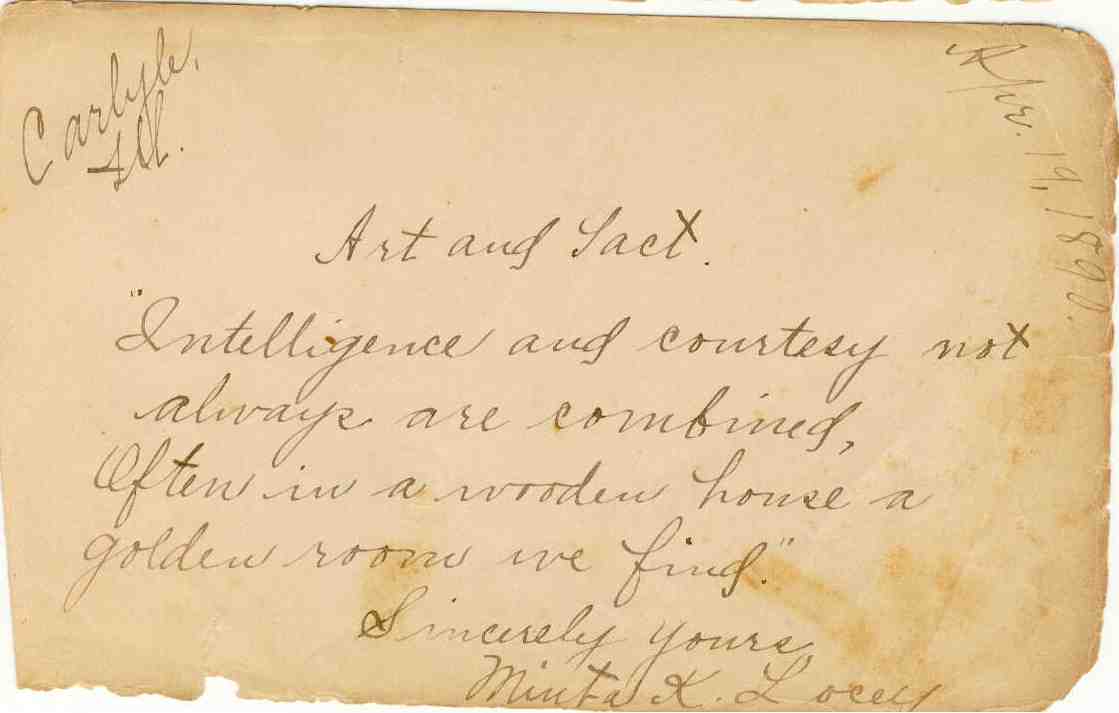 Carlyle,
Ill.
Apr. 19, 1890.
Art and Tact.
"Intelligence and courtesy not
always are combined,
Often in a wooden house a
golden room we find."
Sincerely yours,
Minta K. Locey